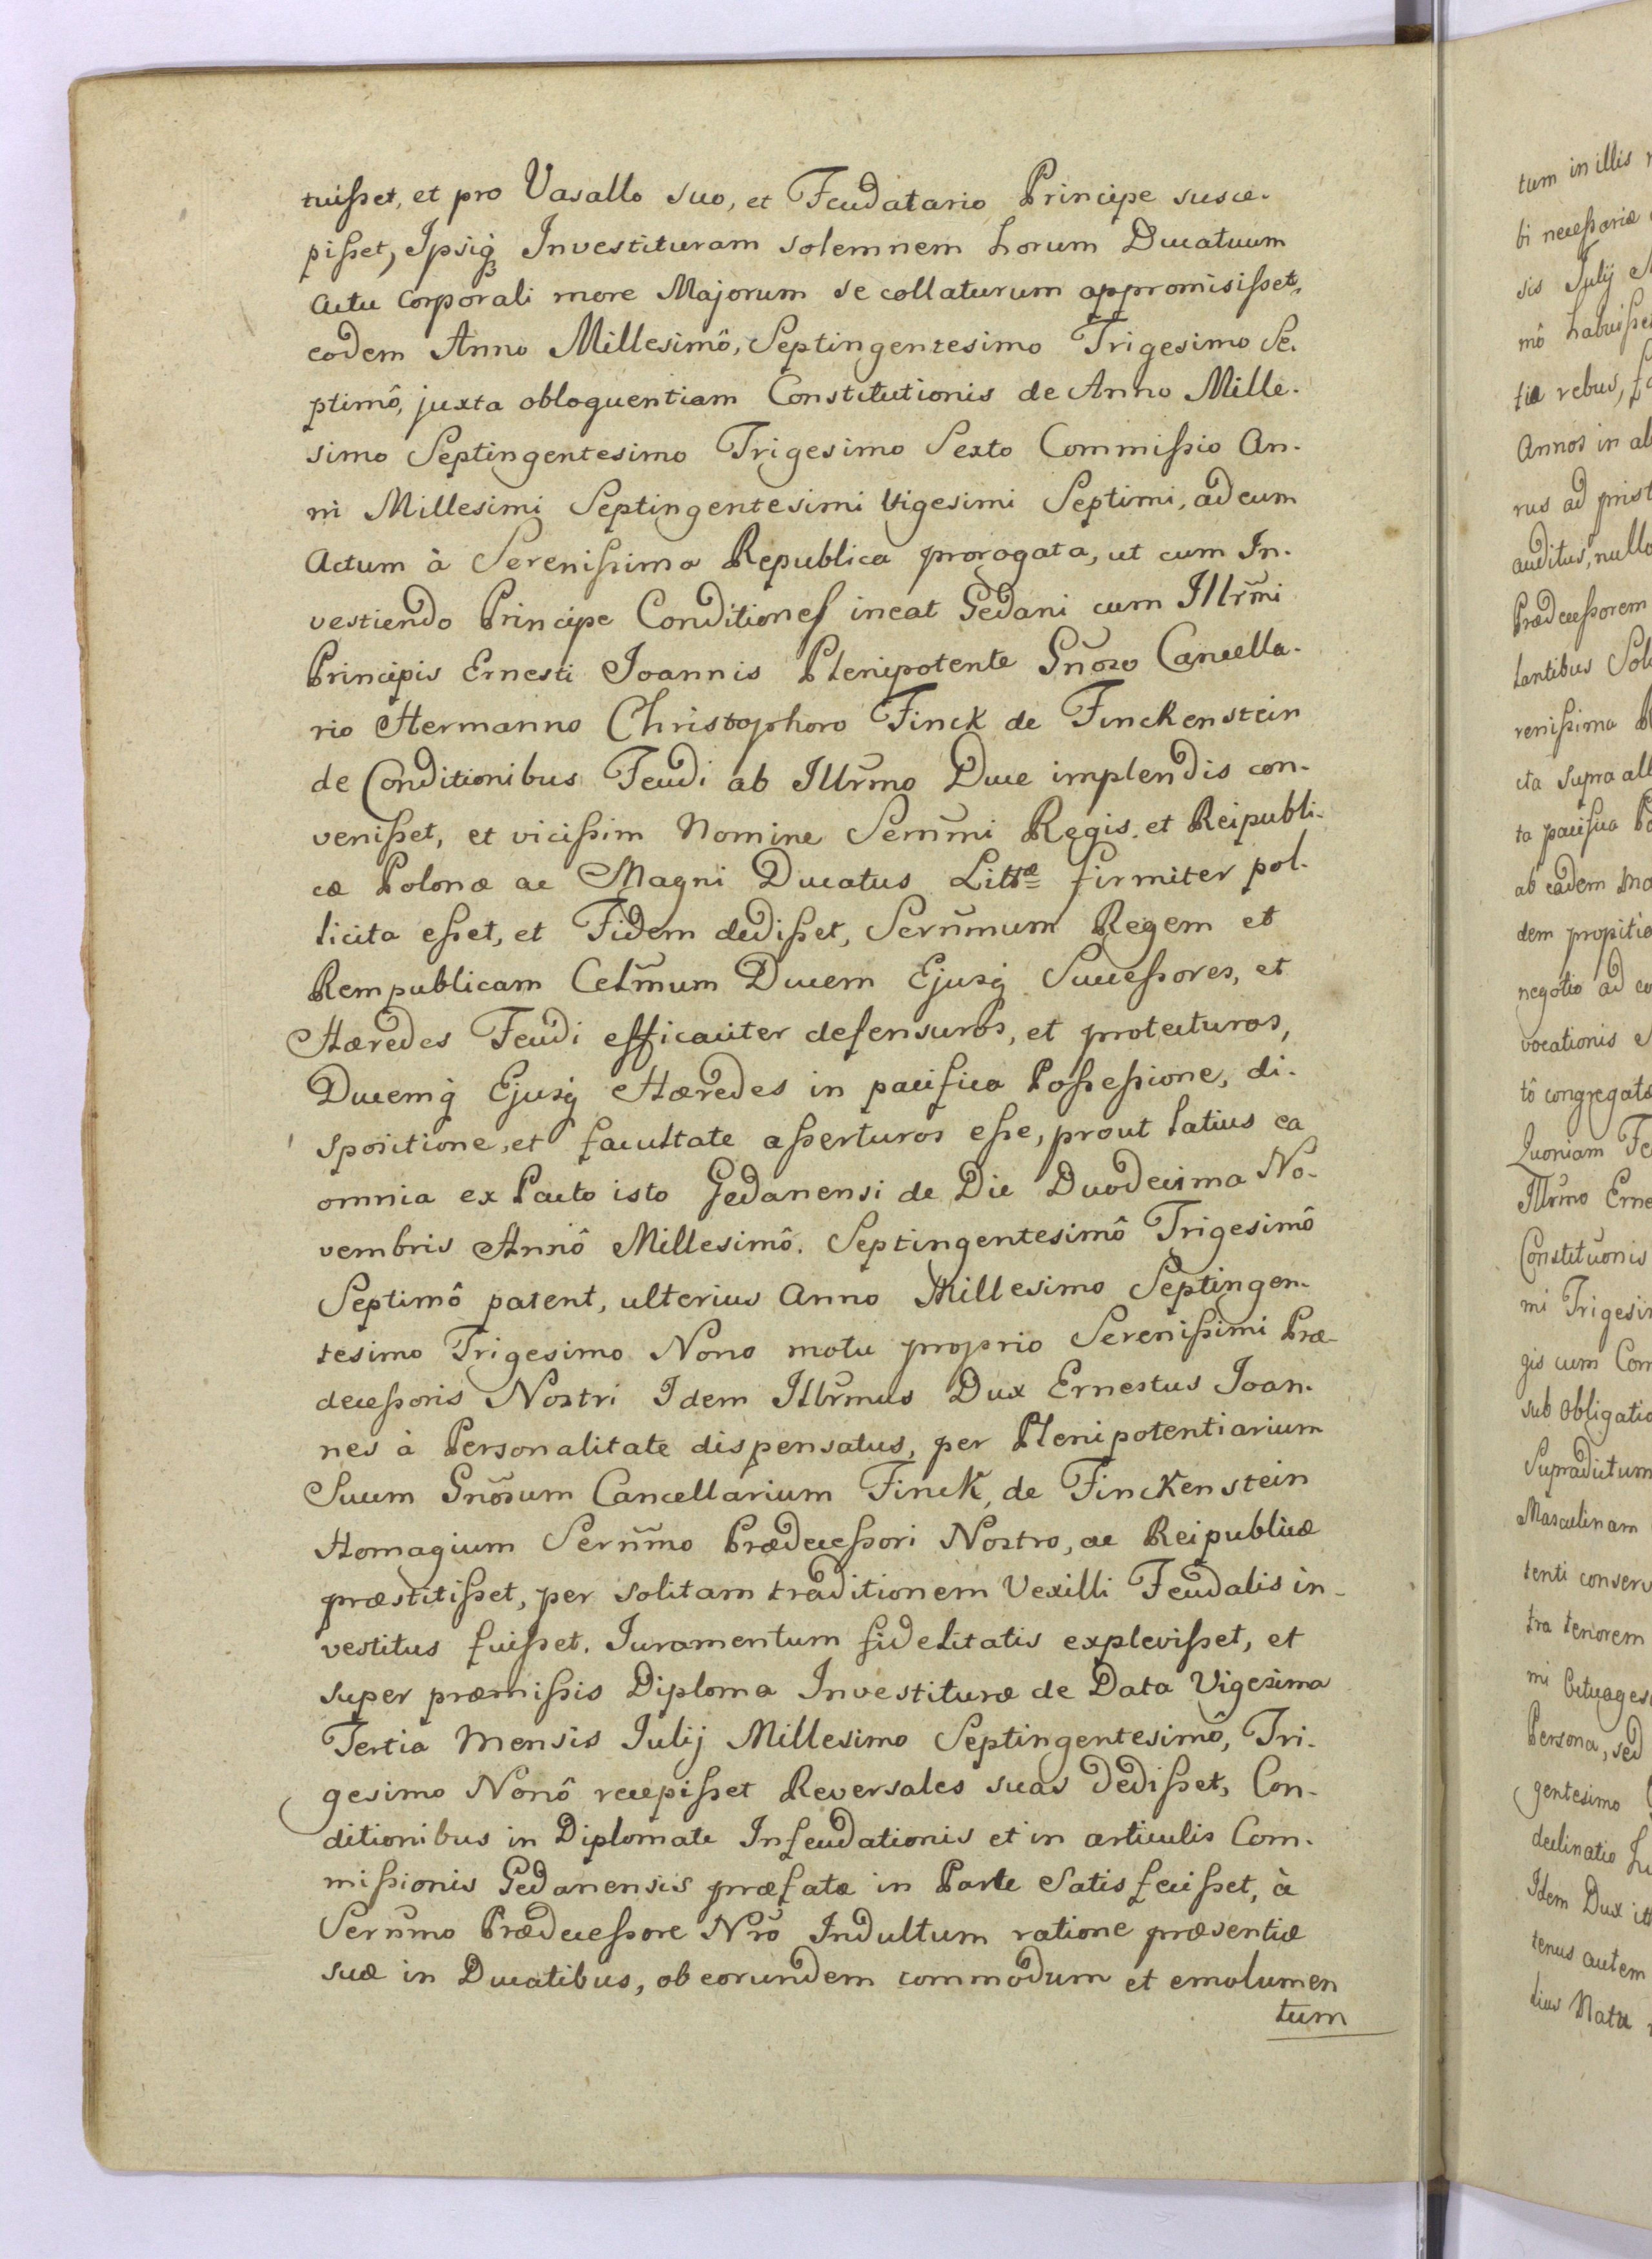 tuisset, et pro Vasallo suo, et Feudatario Principe susce-
pisset, Ipsiq₃ Investituram solemnem horum Ducatuum
actu corporali more Majorum se collaturum appromisisset,
eodem Anno Millesimô, Septingentesimo Trigesimo Se-
ptimô, juxta obloquentiam Constitutionis de Anno Mille-
simo Septingentesimo Trigesimo Sexto Commissio An-
ni Millesimi Septingentesimi Vigesimi Septimi, ad eum
Actum à Serenissima Republica prorogata, ut cum In-
vestiendo Principe Conditiones ineat Gedani cum Illr̃mi
Principis Ernesti Joannis Plenipotente Gñoso Cancella-
rio Hermanno Christophoro Finck de Finckenstein
de Conditionibus Feudi ab Illr̃mo Duce implendis con-
venisset, et vicissim Nomine Serñmi Regis et Reipubli-
cæ Polonæ ac Magni Ducatus Littæ firmiter pol-
licita esset, et Fidem dedisset, Serñmum Regem et
Rempublicam Cels̃mum Ducem Ejusq̃ Successores, et
Hæredes Feudi efficaciter defensuros, et protecturos,
Ducemq̃ Ejusq̃ Hæredes in pacifica Possessione, di-
spositione, et facultate asserturos esse, prout latius ea
omnia ex Pacto isto Gedanensi de Die Duodecima No-
vembris Annô Millesimô. Septingentesimô Trigesimô
Septimô patent, ulterius Anno Millesimo Septingen-
tesimo Trigesimo Nono motu proprio Serenissimi Præ-
decessoris Nostri Idem Illr̃mus Dux Ernestus Joan-
nes à Personalitate dispensatus, per Plenipotentiarium
Suum Gñosum Cancellarium Finck, de Finckenstein
Homagium Serñmo Prædecessori Nostro, ac Reipublicæ
præstitisset, per solitam traditionem Vexilli Feudalis in-
vestitus fuisset. Juramentum fidelitatis explevisset, et
super præmissis Diploma Investituræ de Data Vigesima
Tertia Mensis Julij Millesimo Septingentesimô, Tri-
gesimo Nonô recepisset Reversales suas dedisset, Con-
ditionibus in Diplomate Infeudationis et in articulis Com-
missionis Gedanensis præfatæ in Parte satis fecisset, à
Serñmo Prædecessore Nr̃o Indultum ratione præsentiæ
suæ in Ducatibus, ob eorundem commodum et emolumen
tum
tum in illis
bi necessariæ
sis Julij
mô habuisse
tia rebus,
Annos in
rus ad
auditus, nullo
Prædecessorem
tantibus
renissima
cta supra
ta pacifica
ab eadem
dem
negotio ad
vocationis
tô
Quoniam
Illr̃mo Erne
Constituõnis
mi Trigesi
gis cum Com
sub Obligatio
Supradictum
Masculinam
tenti conserv
tra tenorem
mi
Persona, sed
gentesimo
declinatio
Idem Dux
tenus autem